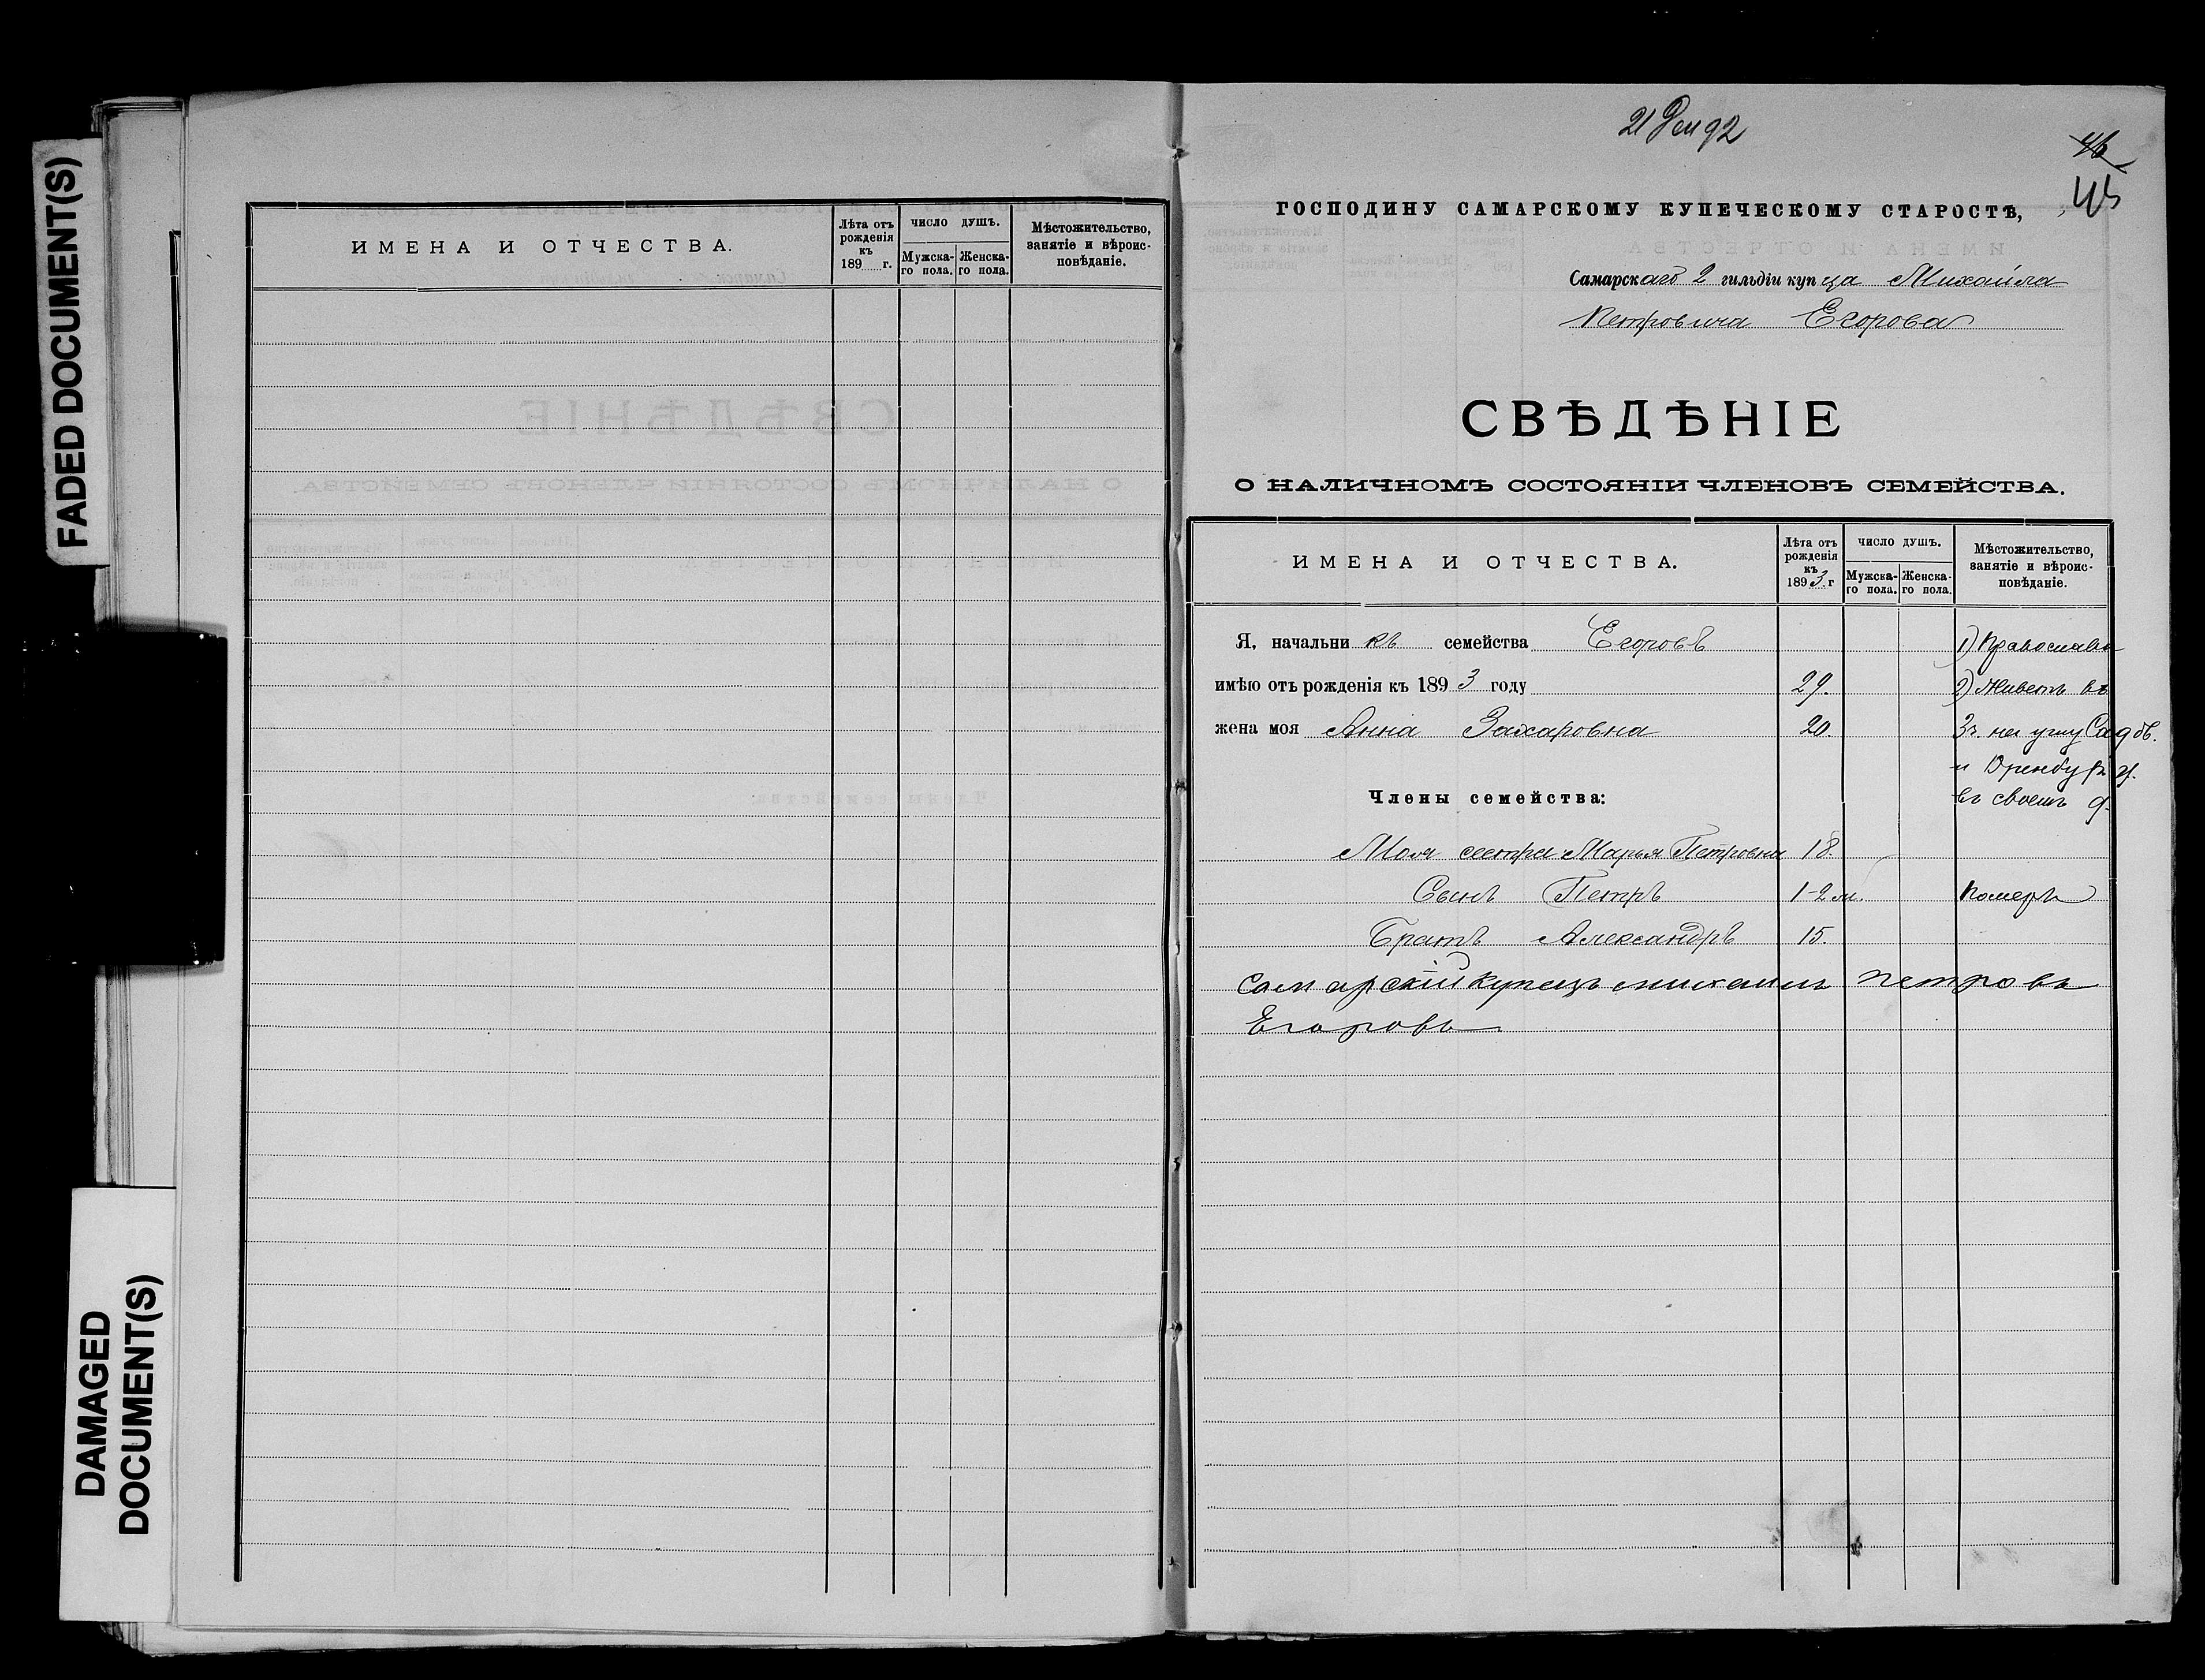 FADED DOCUMENT(S)
DAMAGED
DOCUMENT(S)
ИМЕНА И ОТЧЕСТВА.
Лѣта отъ
рожденія
къ
189 г.
ЧИСЛО ДУШЪ.
Мужска-
го пола.
Женска-
го пола.
Мѣстожительство,
занятіе и вѣроис-
повѣданіе.
21 Дек 92
46
45
ГОСПОДИНУ САМАРСКОМУ КУПЕЧЕСКОМУ СТАРОСТѢ,
Самарскаго 2 гильдіи купца Михаила
Петровича Егорова
СВѢДѢНІЕ
О НАЛИЧНОМЪ СОСТОЯНІИ ЧЛЕНОВЪ СЕМЕЙСТВА.
ИМЕНА И ОТЧЕСТВА.
Лѣта отъ
рожденія
къ
1893 г
ЧИСЛО ДУШЪ.
Мужска-
го пола.
Женска-
го пола.
Мѣстожительство,
занятіе и вѣроис-
повѣданіе.
Я, начальникъ семейства Егоровъ 1) Православн
имѣю отъ рожденія къ 1893 году 29. 2) Живетъ въ
жена моя Анна Захаровна 20. 3ч. на углу Садов.
и Оренбург у.
Члены семейства: въ своемъ д.
Моя сестра Марья Петровна 18.
Сынъ Петръ 1-2 м. померъ
Братъ Александръ 15.
Самарскій купецъ михаилъ петровъ
Егоровъ